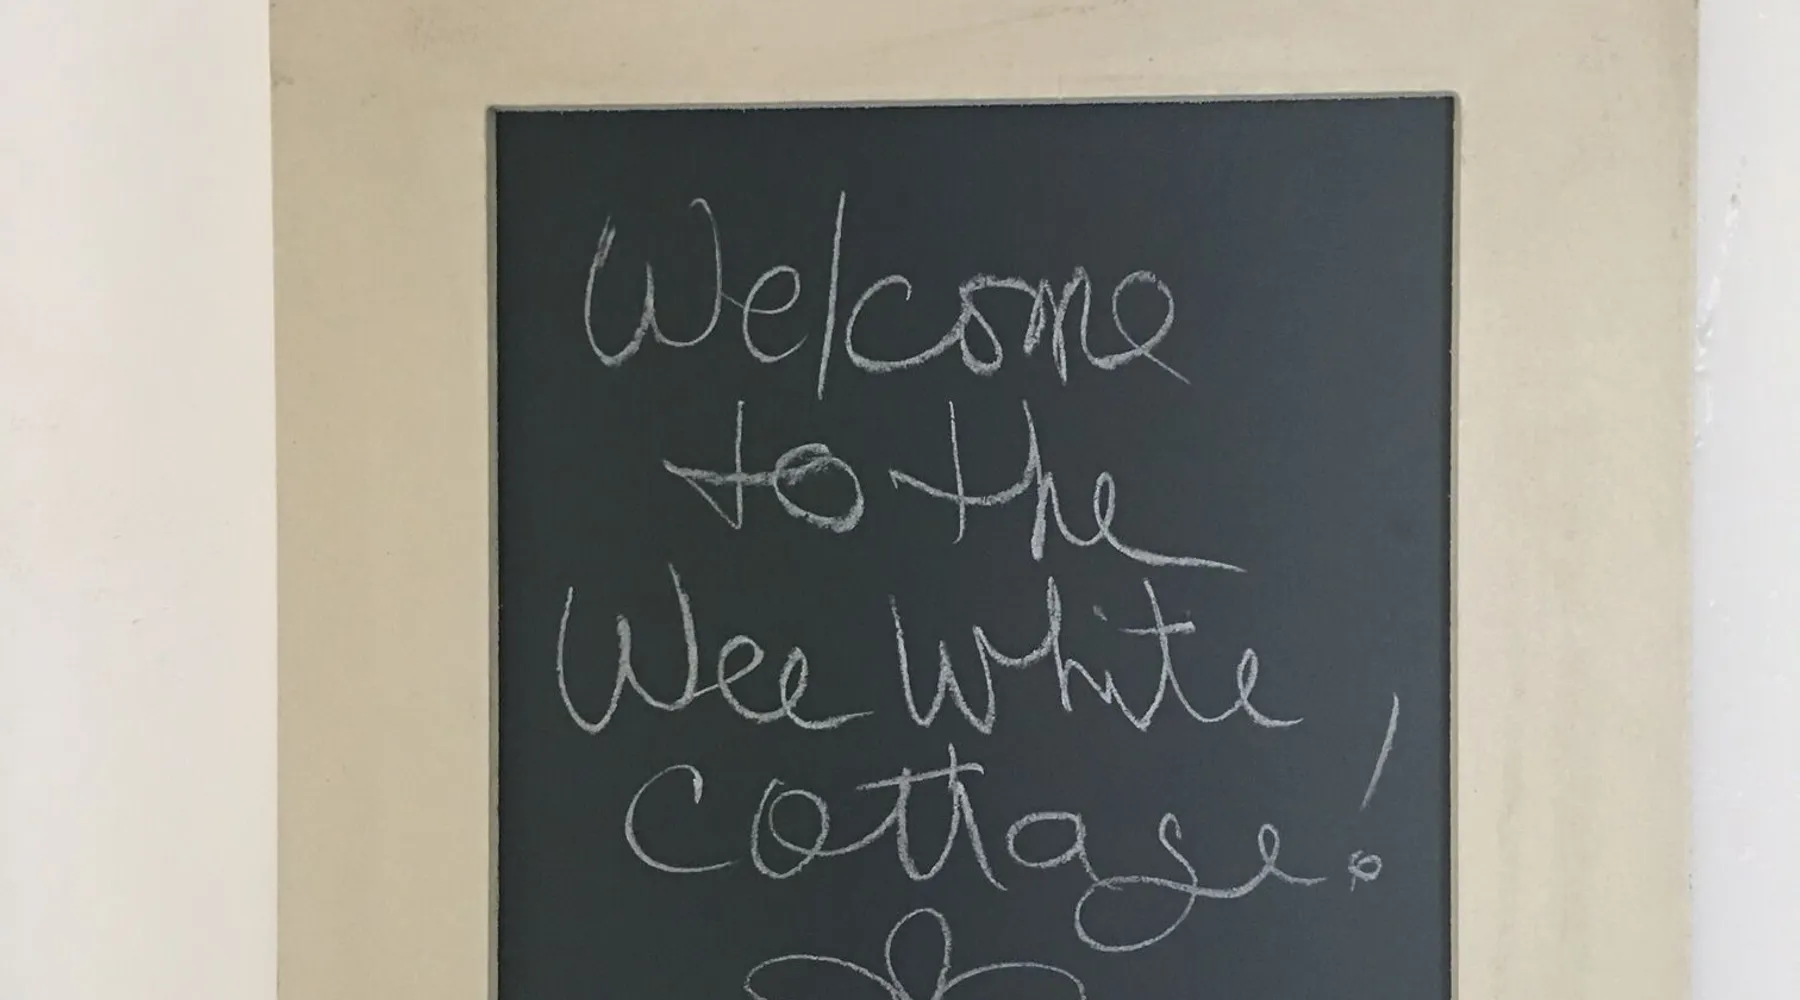 Welcome
to the
Wee White
Cottage!